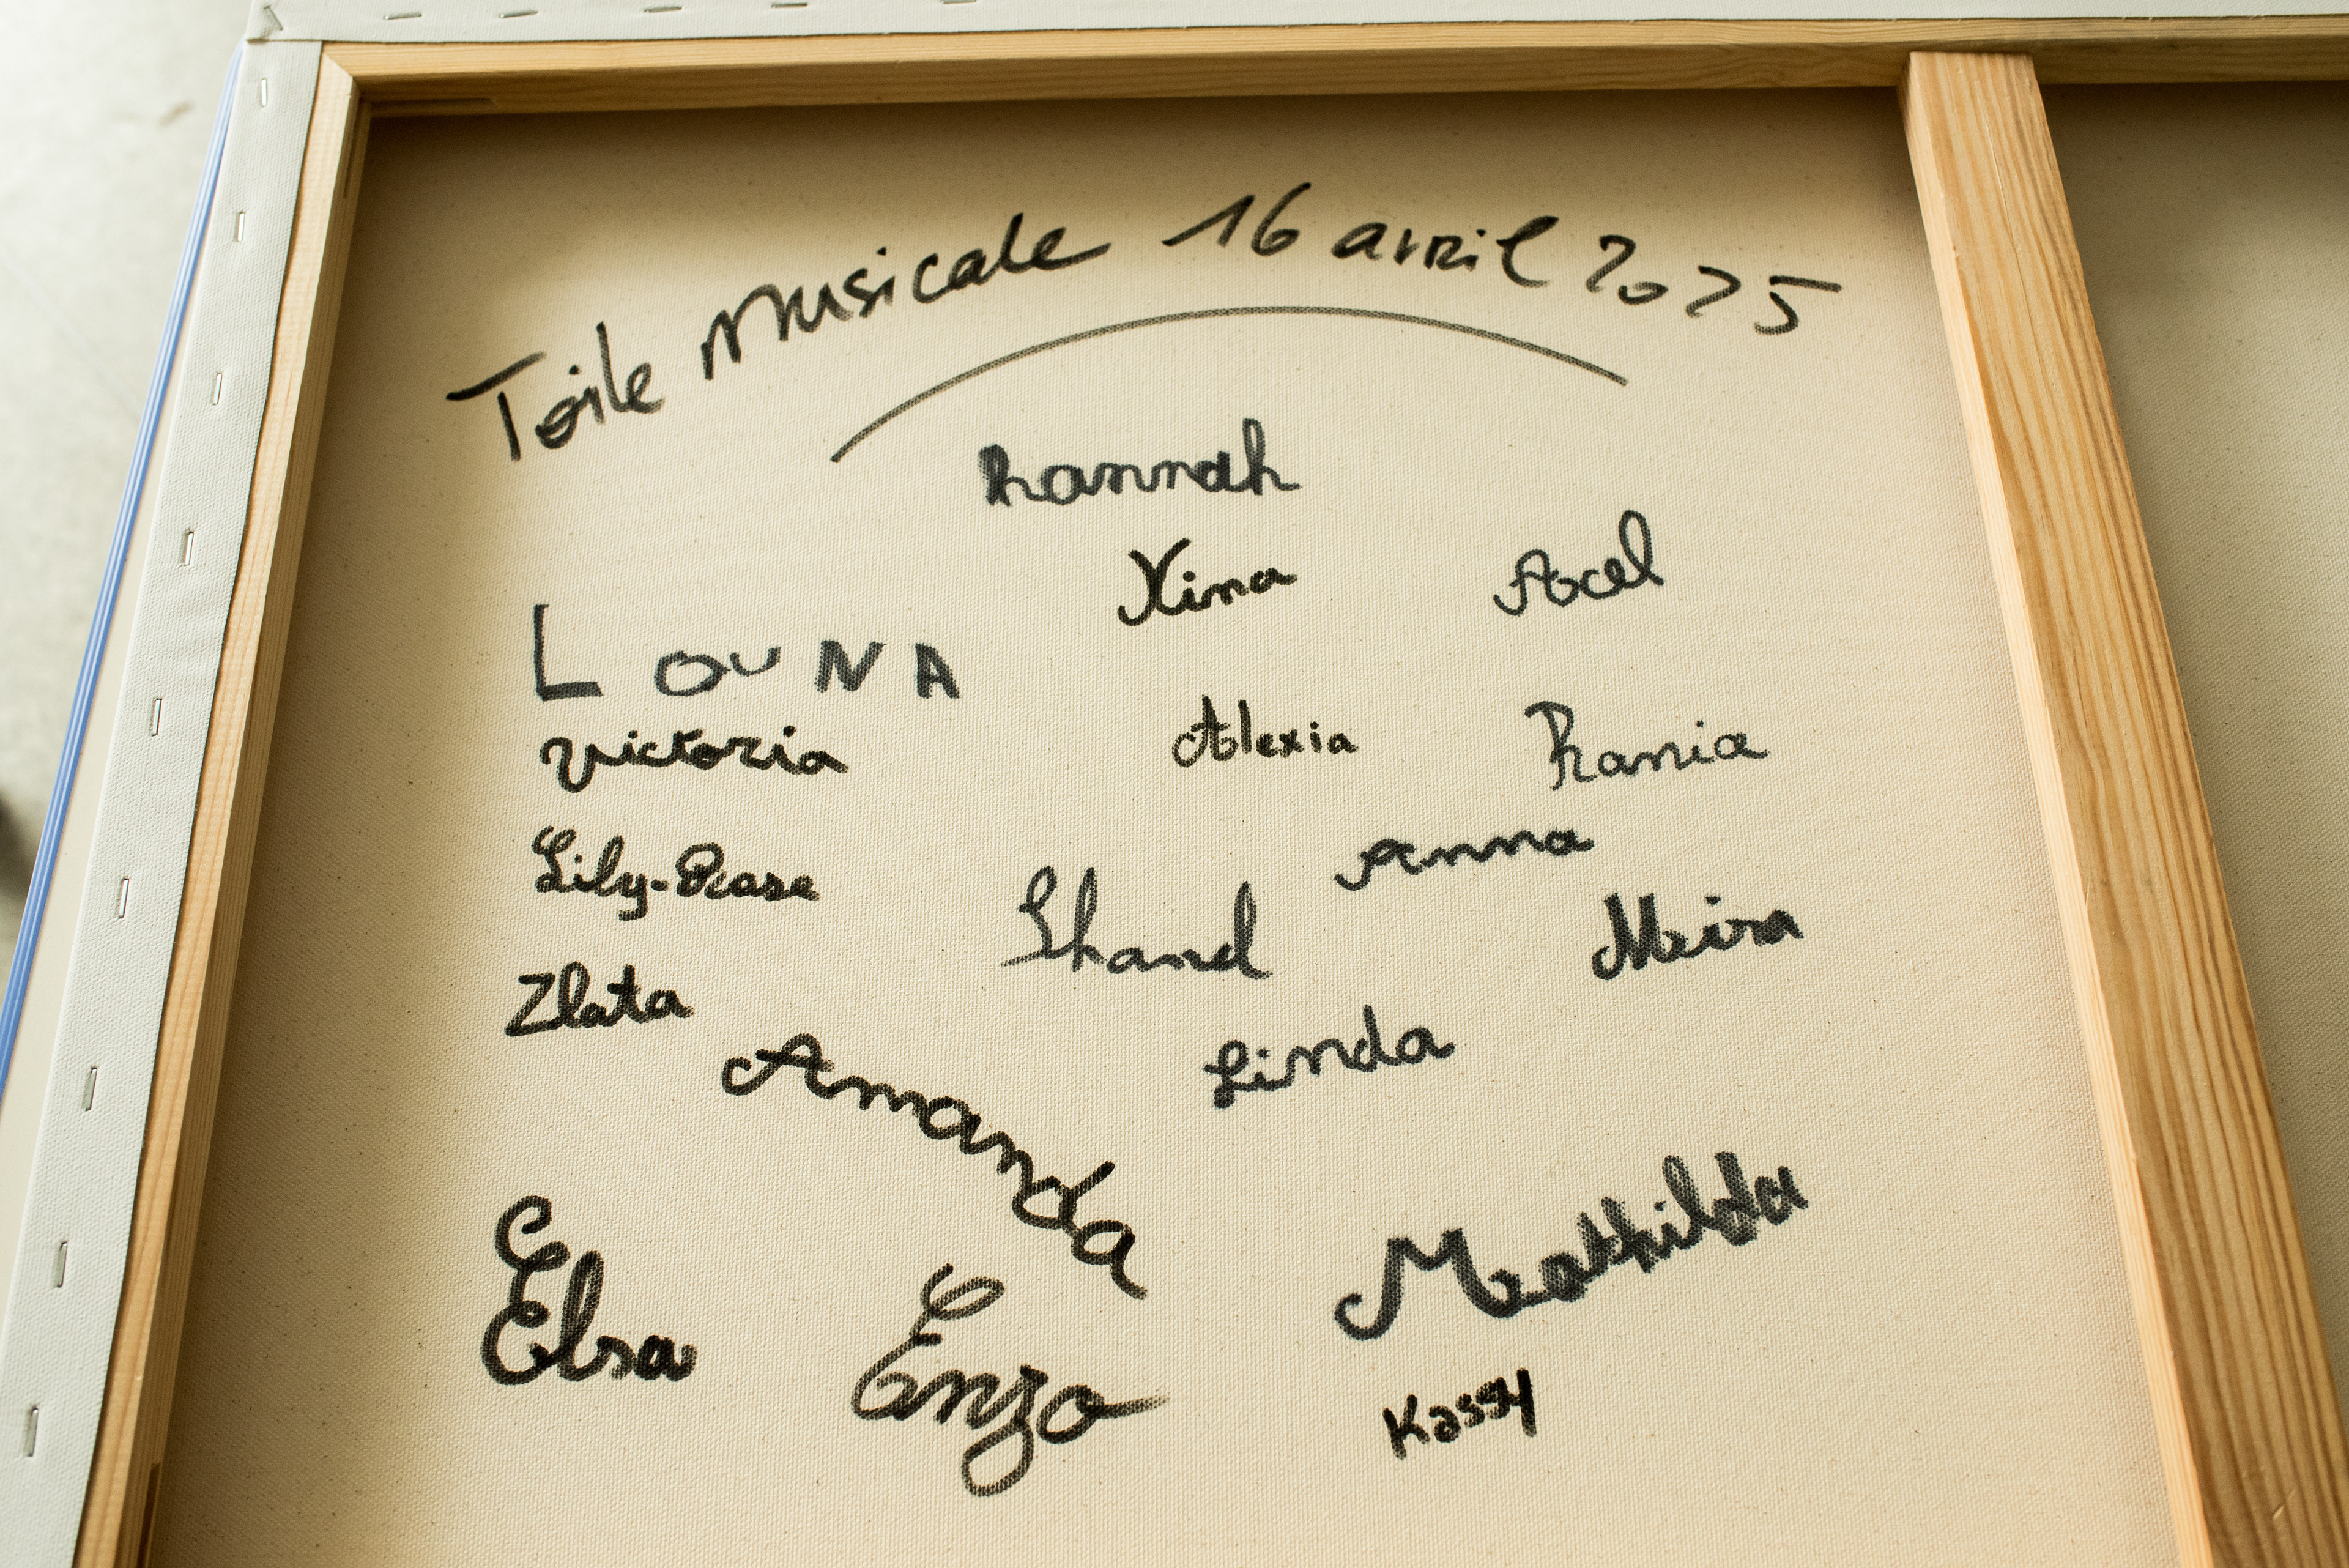 Toile Musicale 16 avril 2025
hannah
Nina
Axel
LOUNA
Victoria
Alexia
Rania
Lily-Rose
Anna
Shand
Meira
Zlata
Amanda
Linda
Elsa
Enzo
Mathilda
Kassy